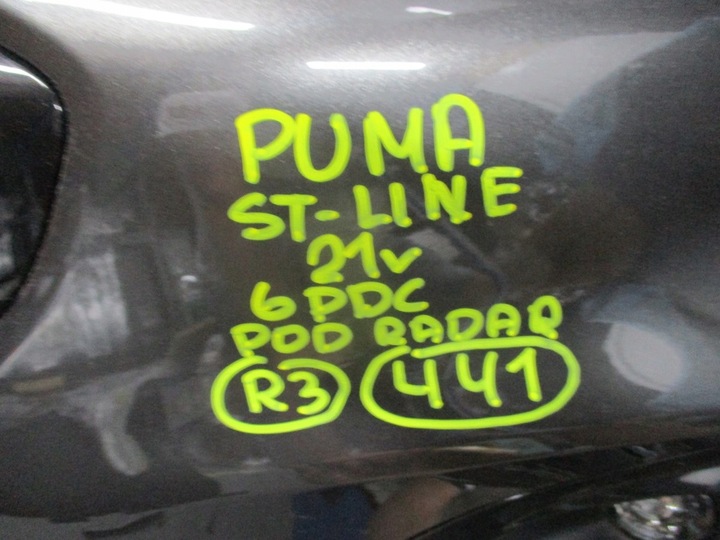 PUMA
ST-LINE
21r
6 PDC
POD RADAR
R3 441